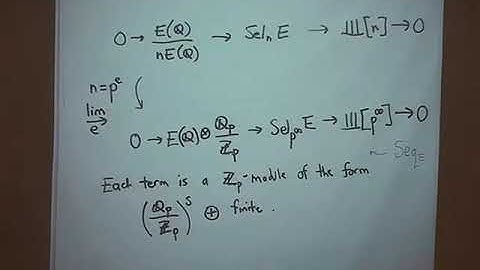 0 → E(ℚ)/nE(ℚ) → Selₙ E → Ш[n] → 0
n = pᵉ
lim→ e
0 → E(ℚ) ⊗ ℚₚ/ℤₚ → Sel_{p^∞} E → Ш[p^∞] → 0
~ Seq_E
Each term is a ℤₚ-module of the form
(ℚₚ/ℤₚ)ˢ ⊕ finite.